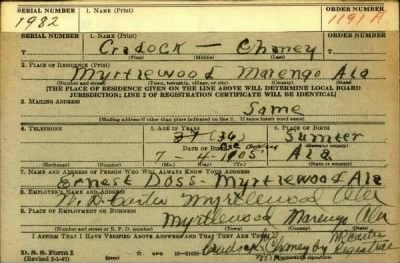 SERIAL NUMBER 1. NAME (Print) ORDER NUMBER
1982 Cradock — Chaney 1191 A
(First) (Middle) (Last)
2. PLACE OF RESIDENCE (Print)
Myrtlewood Marengo Ala
(Number and street) (Town, township, village, or city) (County) (State)
[THE PLACE OF RESIDENCE GIVEN ON THE LINE ABOVE WILL DETERMINE LOCAL BOARD
JURISDICTION; LINE 2 OF REGISTRATION CERTIFICATE WILL BE IDENTICAL]
3. MAILING ADDRESS
Same
(Mailing address if other than place indicated on line 2. If same insert word same)
4. TELEPHONE 5. AGE IN YEARS 6. PLACE OF BIRTH
37 (36) Sumter
DATE OF BIRTH
7-4-1905 Ala
(Exchange) (Number) (Mo.) (Day) (Yr.) (State or country)
7. NAME AND ADDRESS OF PERSON WHO WILL ALWAYS KNOW YOUR ADDRESS
Ernest Doss - Myrtlewood Ala
8. EMPLOYER'S NAME AND ADDRESS
Myrtlewood Ala
9. PLACE OF EMPLOYMENT OR BUSINESS
Myrtlewood Marengo Ala
(Number and street or R. F. D. number) (Town) (County) (State)
I AFFIRM THAT I HAVE VERIFIED ABOVE ANSWERS AND THAT THEY ARE TRUE.
D. S. S. Form 1 Cradock Chaney by Registrar